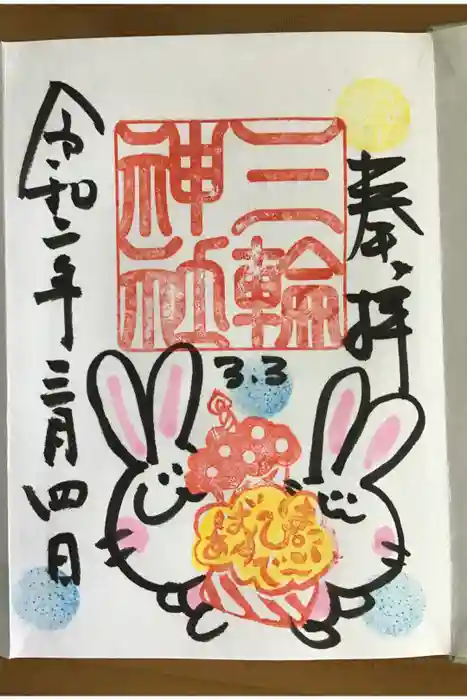 奉拝
三輪
神社
3.3
令和二年三月四日